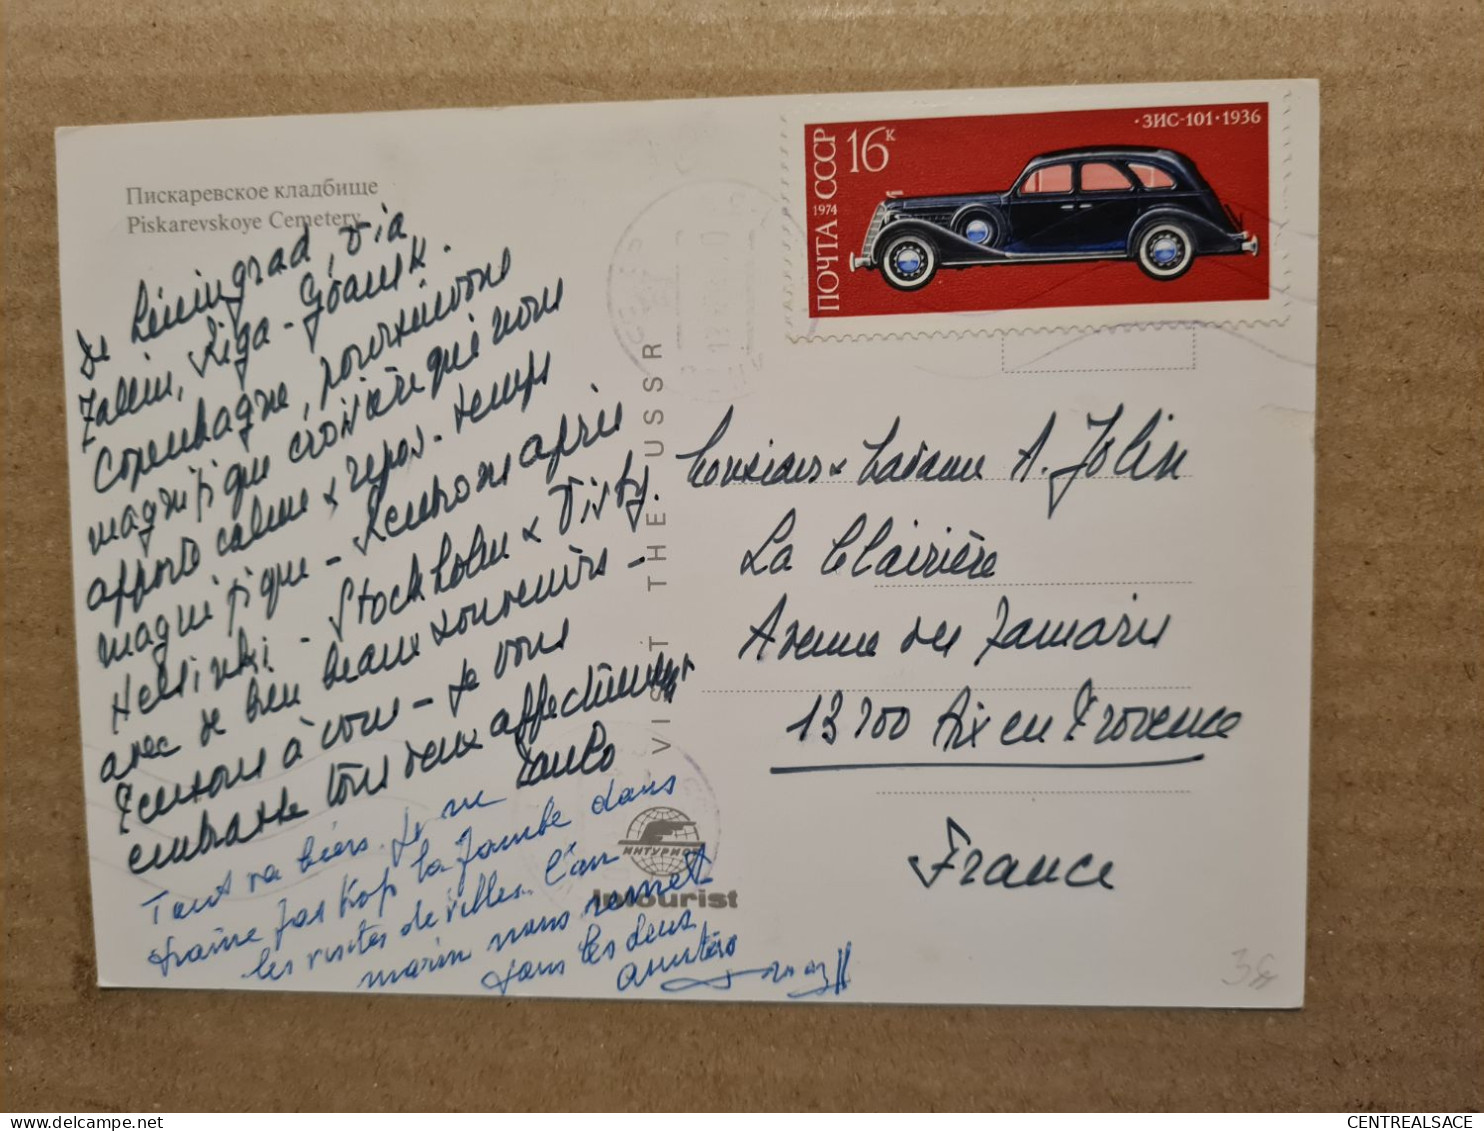 Пискаревское кладбище
Piskarevskoye Cemetery
De Léningrad, via
Tallin, Riga - Gdansk.
Copenhague, poursuivons
magnifique croisière qui nous
apporte calme & repos - temps
magnifique - Rentrons après
Helsinki - Stockholm & Visby.
avec de bien beaux souvenirs -
Pensons à vous - Je vous
embrasse tous deux affectueusement
Tout va bien. Je ne
traîne pas trop la jambe dans
les visites de villes. L'air
marin nous remet
dans les deux
VISIT THE USSR
ИНТУРИСТ
intourist
ПОЧТА СССР
1974
16к
·ЗИС-101·1936
Monsieur & Madame A. Jolin
La Clairière
Avenue des Tamaris
13100 Aix en Provence
France
delcampe.net
CENTREALSACE